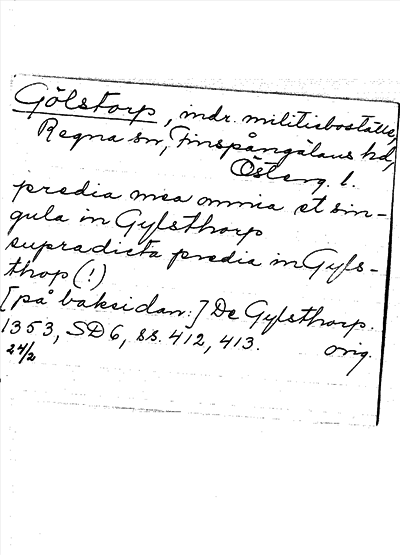 Gölstorp, indr. militieboställe,
Regna sn, Finspångaläns hd,
Österg. l.
predia mea omnia et sin-
gula in Gylsthorp
supradicta predia in Gyls-
thop (!)
[på baksidan:] De Gylsthorp.
1353, SD 6, ss. 412, 413. orig.
24/2